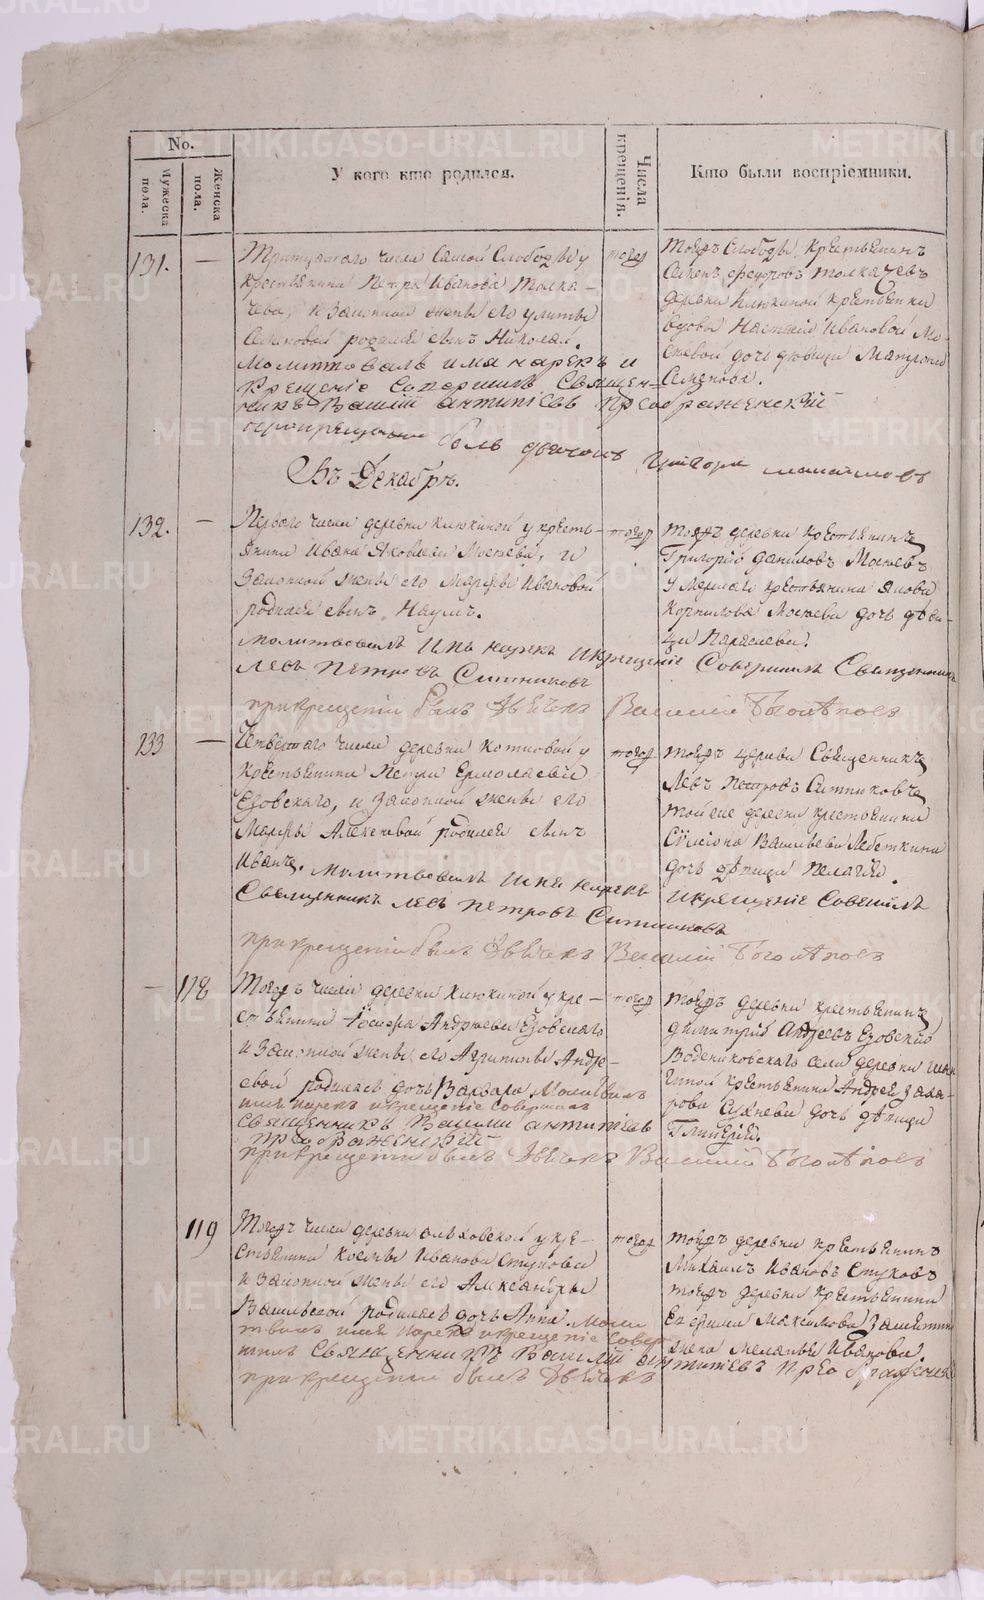 No.
Мужеска пола.
Женска пола.
У кого кто родился.
Числа крещенія.
Кто были воспріемники.
131. —
Тритцатаго числа Самой Слободы у
крестьянина Петра Иванова Толка-
чева, и законной жены его Улиты
Семеновой родился сынъ Николай.
Молитвовалъ имя нарекъ и
крещеніе совершилъ Священ-
никъ Василій Антипіевъ Преображенскій
при крещеніи былъ дьячокъ Григорій
тогод
тояжъ Слободы крестьянинъ
Семенъ Федоровъ Толкачевъ
деревни Клюкиной крестьянки
вдовы Настасіи Ивановой Мо-
дочь девица Матрона
Семенова.
Въ Декабрѣ.
132. —
Перваго числа деревни Клюкиной у кресть-
янина Ивана Яковлева Мокеева, и
законной жены его Марфы Ивановой
родился сынъ Наумъ.
молитвовалъ имя нарекъ и крещеніе совершилъ Священникъ
Левъ Петровъ Ситниковъ
при крещеніи былъ дьячекъ Василій Боголѣповъ
тогод
тояжъ деревни крестьянинъ
Григорій Даниловъ Мокеевъ
умершаго крестьянина Якова
Корнилова Мокеева дочь дѣви-
ца Параскева.
133 —
Четвертаго числа деревни у
крестьянина Петра Ермолаева
Езовскаго, и законной жены его
Марфы Алексеевой родился сынъ
Иванъ. молитвовалъ имя нарекъ и крещеніе совершилъ
Священникъ Левъ Петровъ Ситниковъ
при крещеніи былъ дьячекъ Василій Боголѣповъ
тогод
тояжъ церкви Священникъ
Левъ Петровъ Ситниковъ
той же деревни крестьянина
Васильева
дочь дѣвица Пелагія.
— 118
Тогожъ числа деревни Клюкиной у кре-
стьянина Іосифа Андреева Езовскаго
и законной жены его Агрипины Андре-
евой родилась дочь Варвара Молитвовалъ
имя нарекъ и крещеніе совершилъ
Священникъ Василій Антипіевъ
Преображенскій
при крещеніи былъ дьячекъ Василій Боголѣповъ
тогод
тояжъ деревни крестьянинъ
Димитрій Андреевъ Езовскій
села деревни
крестьянина Андрея Заха-
рова дочь дѣвица
Гликерія.
119
Тогожъ числа деревни Ольховской у кре-
стьянина Космы Иванова Стукова
и законной жены его Александры
Васильевой родилась дочь Анна Моли
твовалъ имя нарекъ и крещеніе совер
шилъ Священникъ Василій Антипіевъ Преображенскій
при крещеніи былъ дьячекъ
тогод
тояжъ деревни крестьянинъ
Михаилъ Ивановъ Стуковъ
тояжъ деревни крестьянина
Ефима Максимова
жена Меланья Иванова.
METRIKI.GASO-URAL.RU